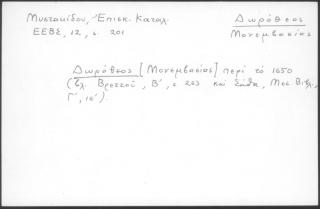 Μυστακίδου, Ἐπισκ. Καταλ.
ΕΕΒΣ, 12, σ. 201
Δωρόθεος
Μονεμβασίας
Δωρόθεος [Μονεμβασίας] περί τό 1650
(βλ. Βρεττοῦ, Β', σ 203 καί Σάθα, Μεσ. Βιβλ.
Γ', ις').